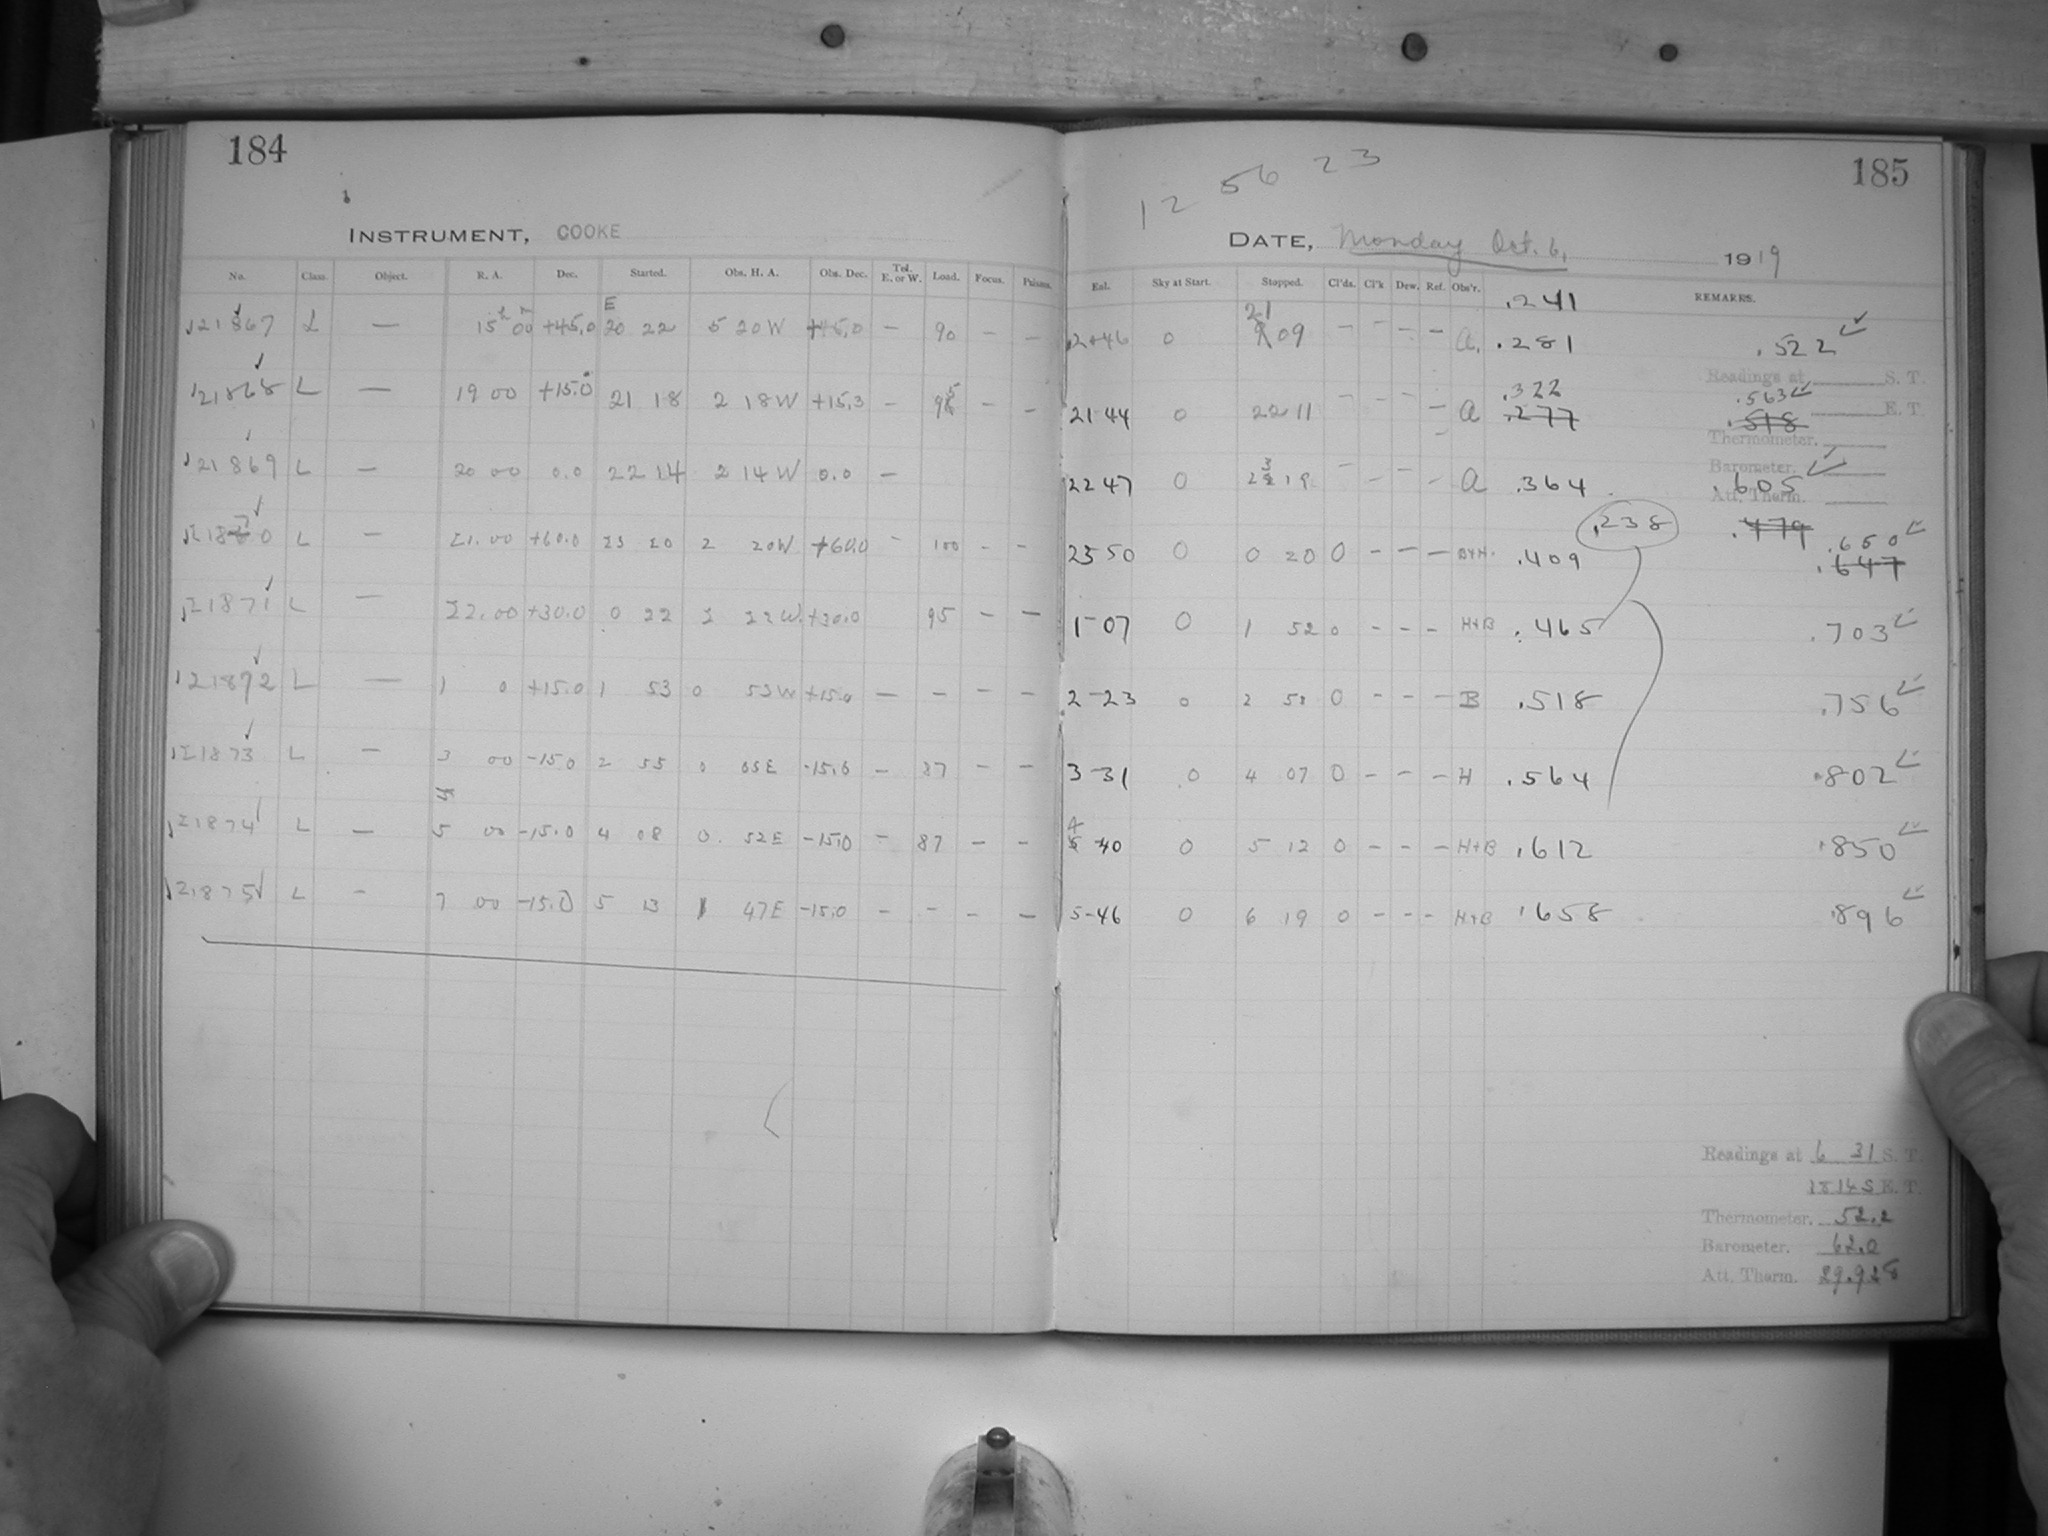 184
INSTRUMENT, COOKE
No. Class. Object. R. A. Dec. Started. Obs. H. A. Obs. Dec. Tel. E. or W. Load. Focus. Prisms.
21867 L — 15h 00m +45.0 E 20 22 5 20W +45.0 — 90 — —
21868 L — 19 00 +15.0 21 18 2 18W +15.3 — 95 — —
21869 L — 20 00 0.0 22 14 2 14W 0.0 —
21870 L — 21.00 +60.0 23 20 2 20W +60.0 — 100 — —
21871 L — 22.00 +30.0 0 22 2 22W +30.0 95 — —
21872 L — 1 0 +15.0 1 53 0 53W +15.0 — — — —
21873 L — 3 00 -15.0 2 55 0 05E -15.0 — 87 — —
21874 L — 5 00 -15.0 4 08 0. 52E -15.0 — 87 — —
21875 L — 7 00 -15.0 5 13 1 47E -15.0 — — — —
185
12 56 23
DATE, Monday Oct. 6, 1919
Exl. Sky at Start. Stopped. Cl'ds. Cl'k Dew. Ref. Obs'r. REMARKS.
.241
0 21 09 — — — — A. .281 .522
Readings at S. T.
.322 .563
21 44 0 22 11 — — — A .277 .518 E. T.
Thermometer.
Barometer.
22 47 0 23 19 — — — A .364 .605
Att. Tharm.
.238 .479
.650
23 50 0 0 20 0 — — — B+H. .409 .647
1-07 0 1 52 0 — — — H+B .465 .703
2-23 0 2 0 — — — B .518 .756
3-31 0 4 07 0 — — — H .564 .802
4-40 0 5 12 0 — — — H+B .612 .850
5-46 0 6 19 0 — — — H+B .658 .896
Readings at 6 31 S. T.
E. T.
Thermometer. 52.2
Barometer. 62.0
Att. Tharm. 29.928